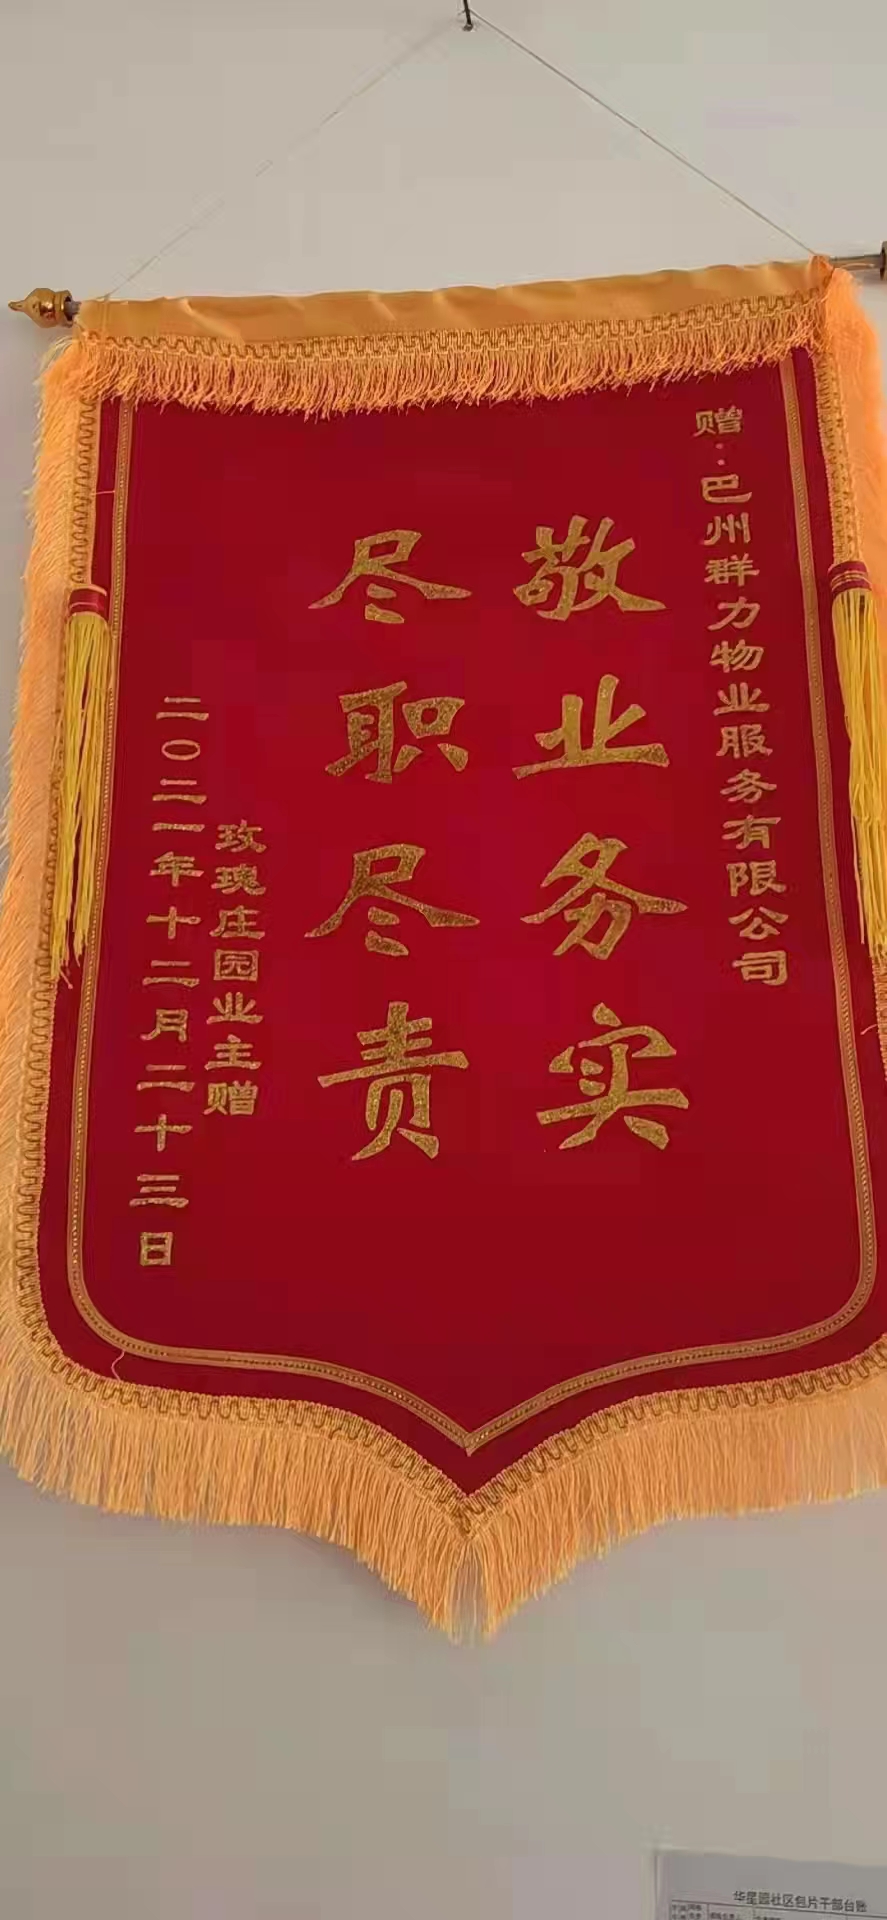 赠：巴州群力物业服务有限公司
敬业务实
尽职尽责
玫瑰庄园业主赠
二〇二一年十二月二十三日
华星园社区包片干部台账